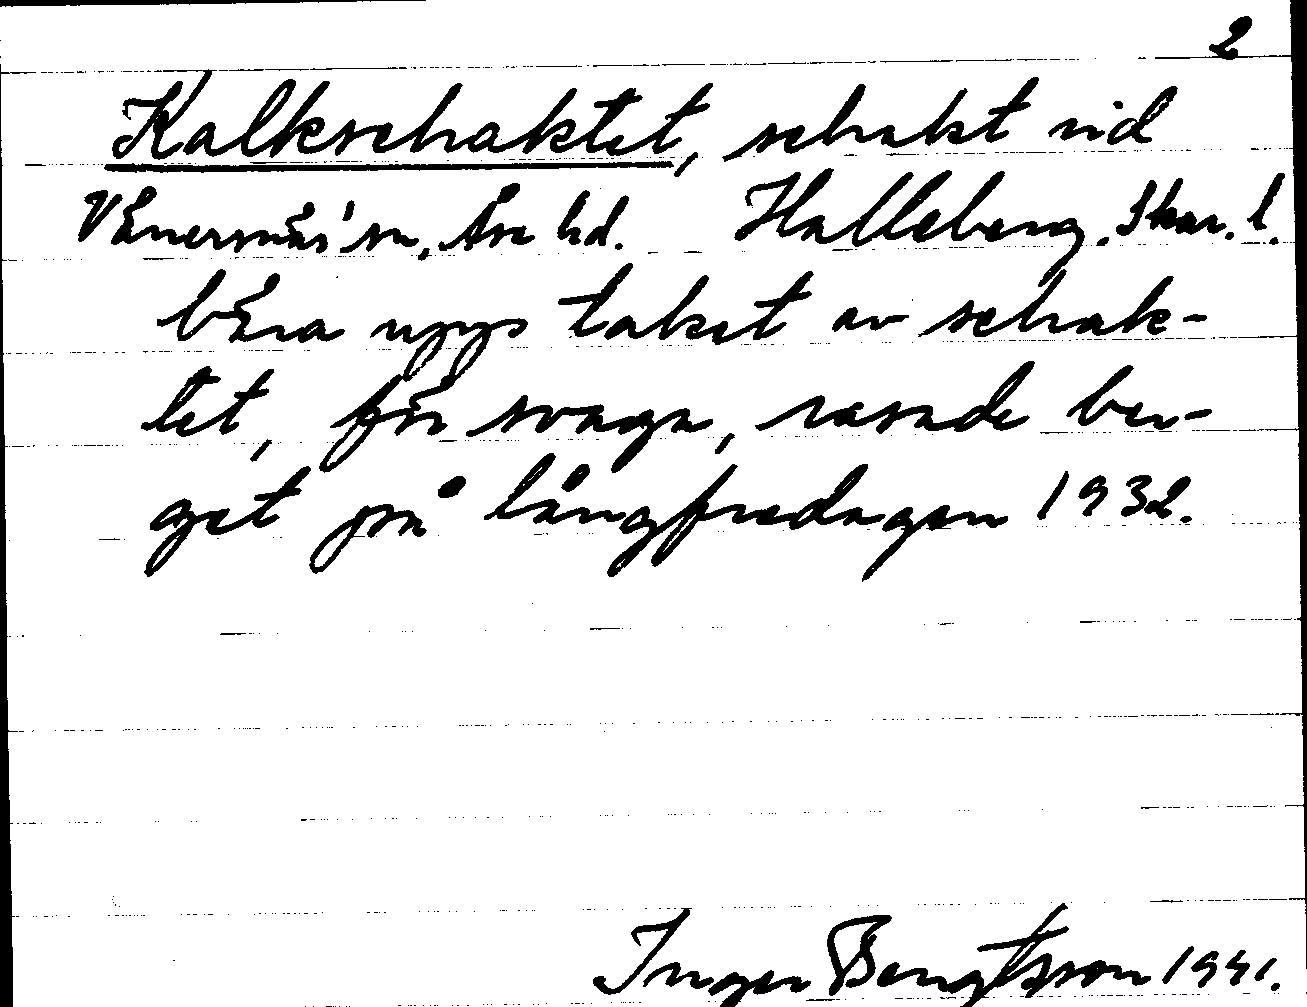 2
Kalkschaktet, schakt vid
Vänersnäs' sn, Åse hd. Halleberg. Skar. l.
bära upp taket av schak-
tet, för svaga, rasade ber-
get på långfredagen 1932.
Inger Bengtsson 1941.